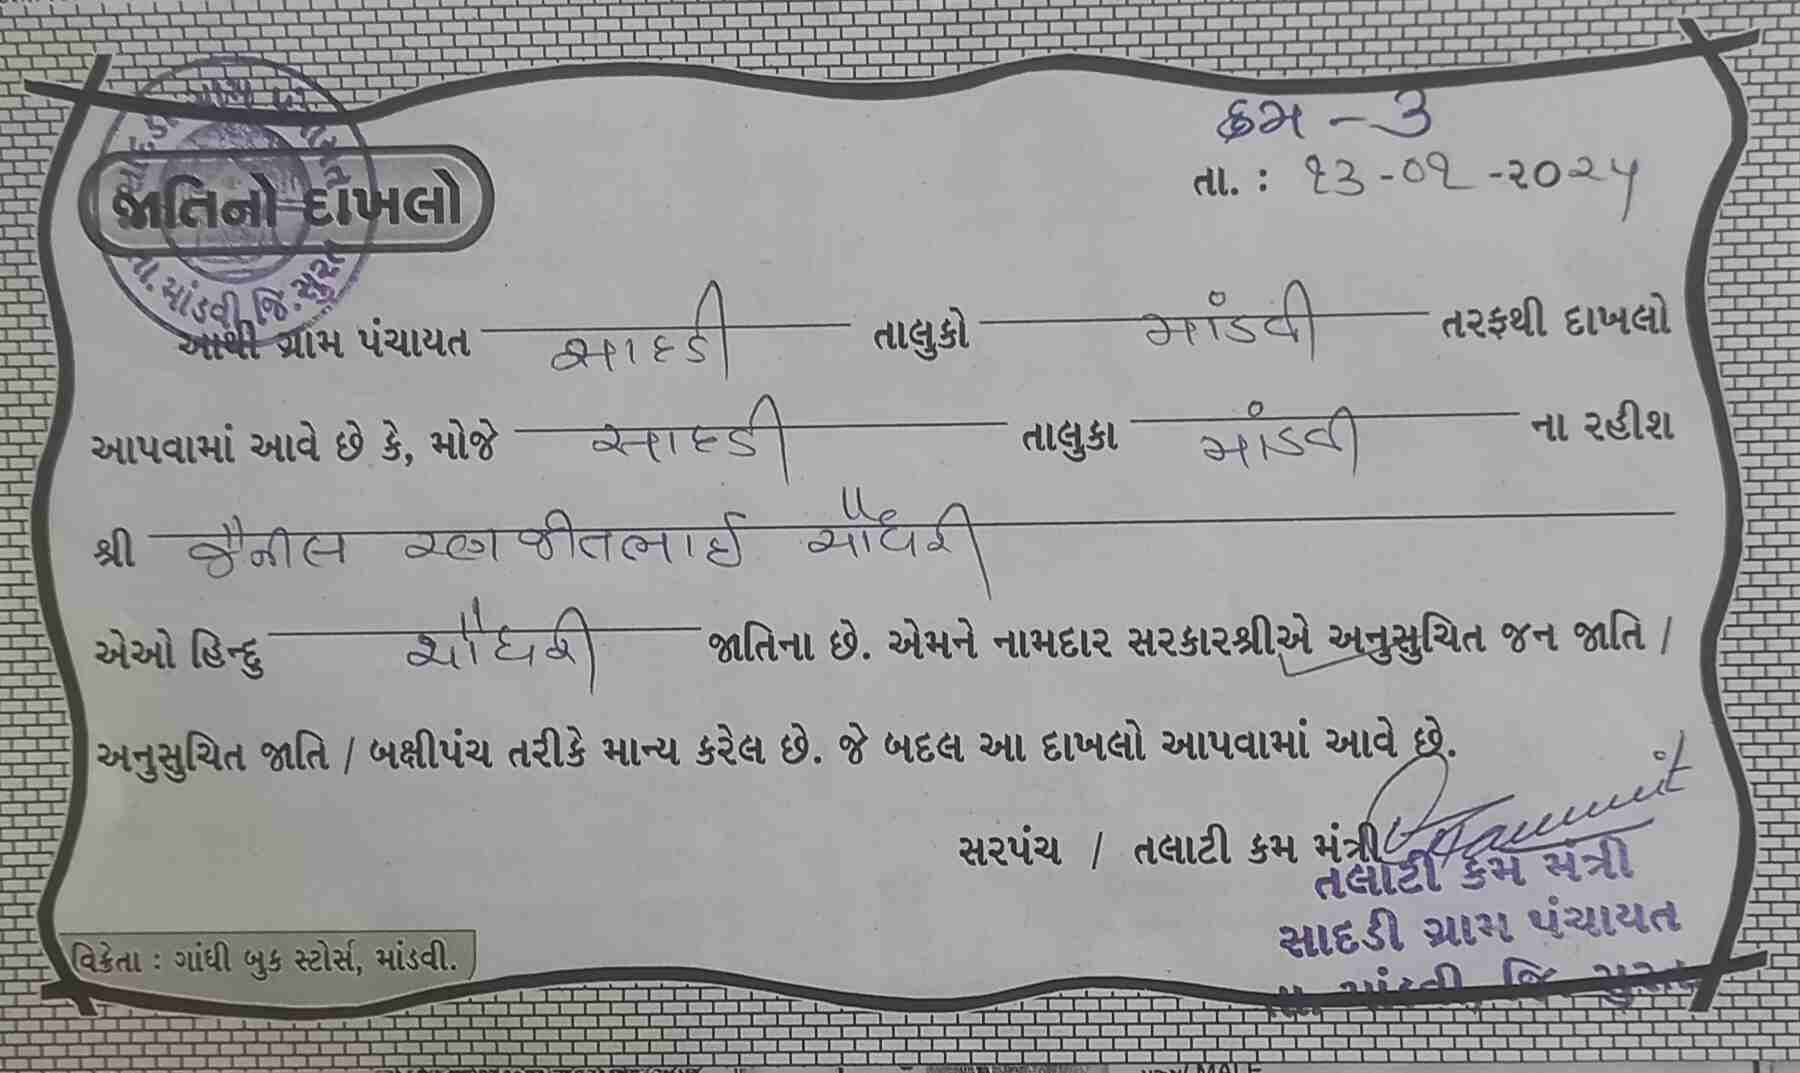 ક્રમ - ૩
તા. : ૧૩-૦૧-૨૦૨૫
જાતિનો દાખલો
તા. માંડવી, જિ. સુરત
આથી ગ્રામ પંચાયત સાદડી તાલુકો માંડવી તરફથી દાખલો
આપવામાં આવે છે કે, મોજે સાદડી તાલુકા માંડવી ના રહીશ
શ્રી જૈનીલ રણજીતભાઈ ચૌધરી
એઓ હિન્દુ ચૌધરી જાતિના છે. એમને નામદાર સરકારશ્રીએ અનુસુચિત જન જાતિ /
અનુસુચિત જાતિ / બક્ષીપંચ તરીકે માન્ય કરેલ છે. જે બદલ આ દાખલો આપવામાં આવે છે.
સરપંચ / તલાટી કમ મંત્રી
તલાટી કમ મંત્રી
સાદડી ગ્રામ પંચાયત
તા. માંડવી, જિ. સુરત
વિક્રેતા : ગાંધી બુક સ્ટોર્સ, માંડવી.